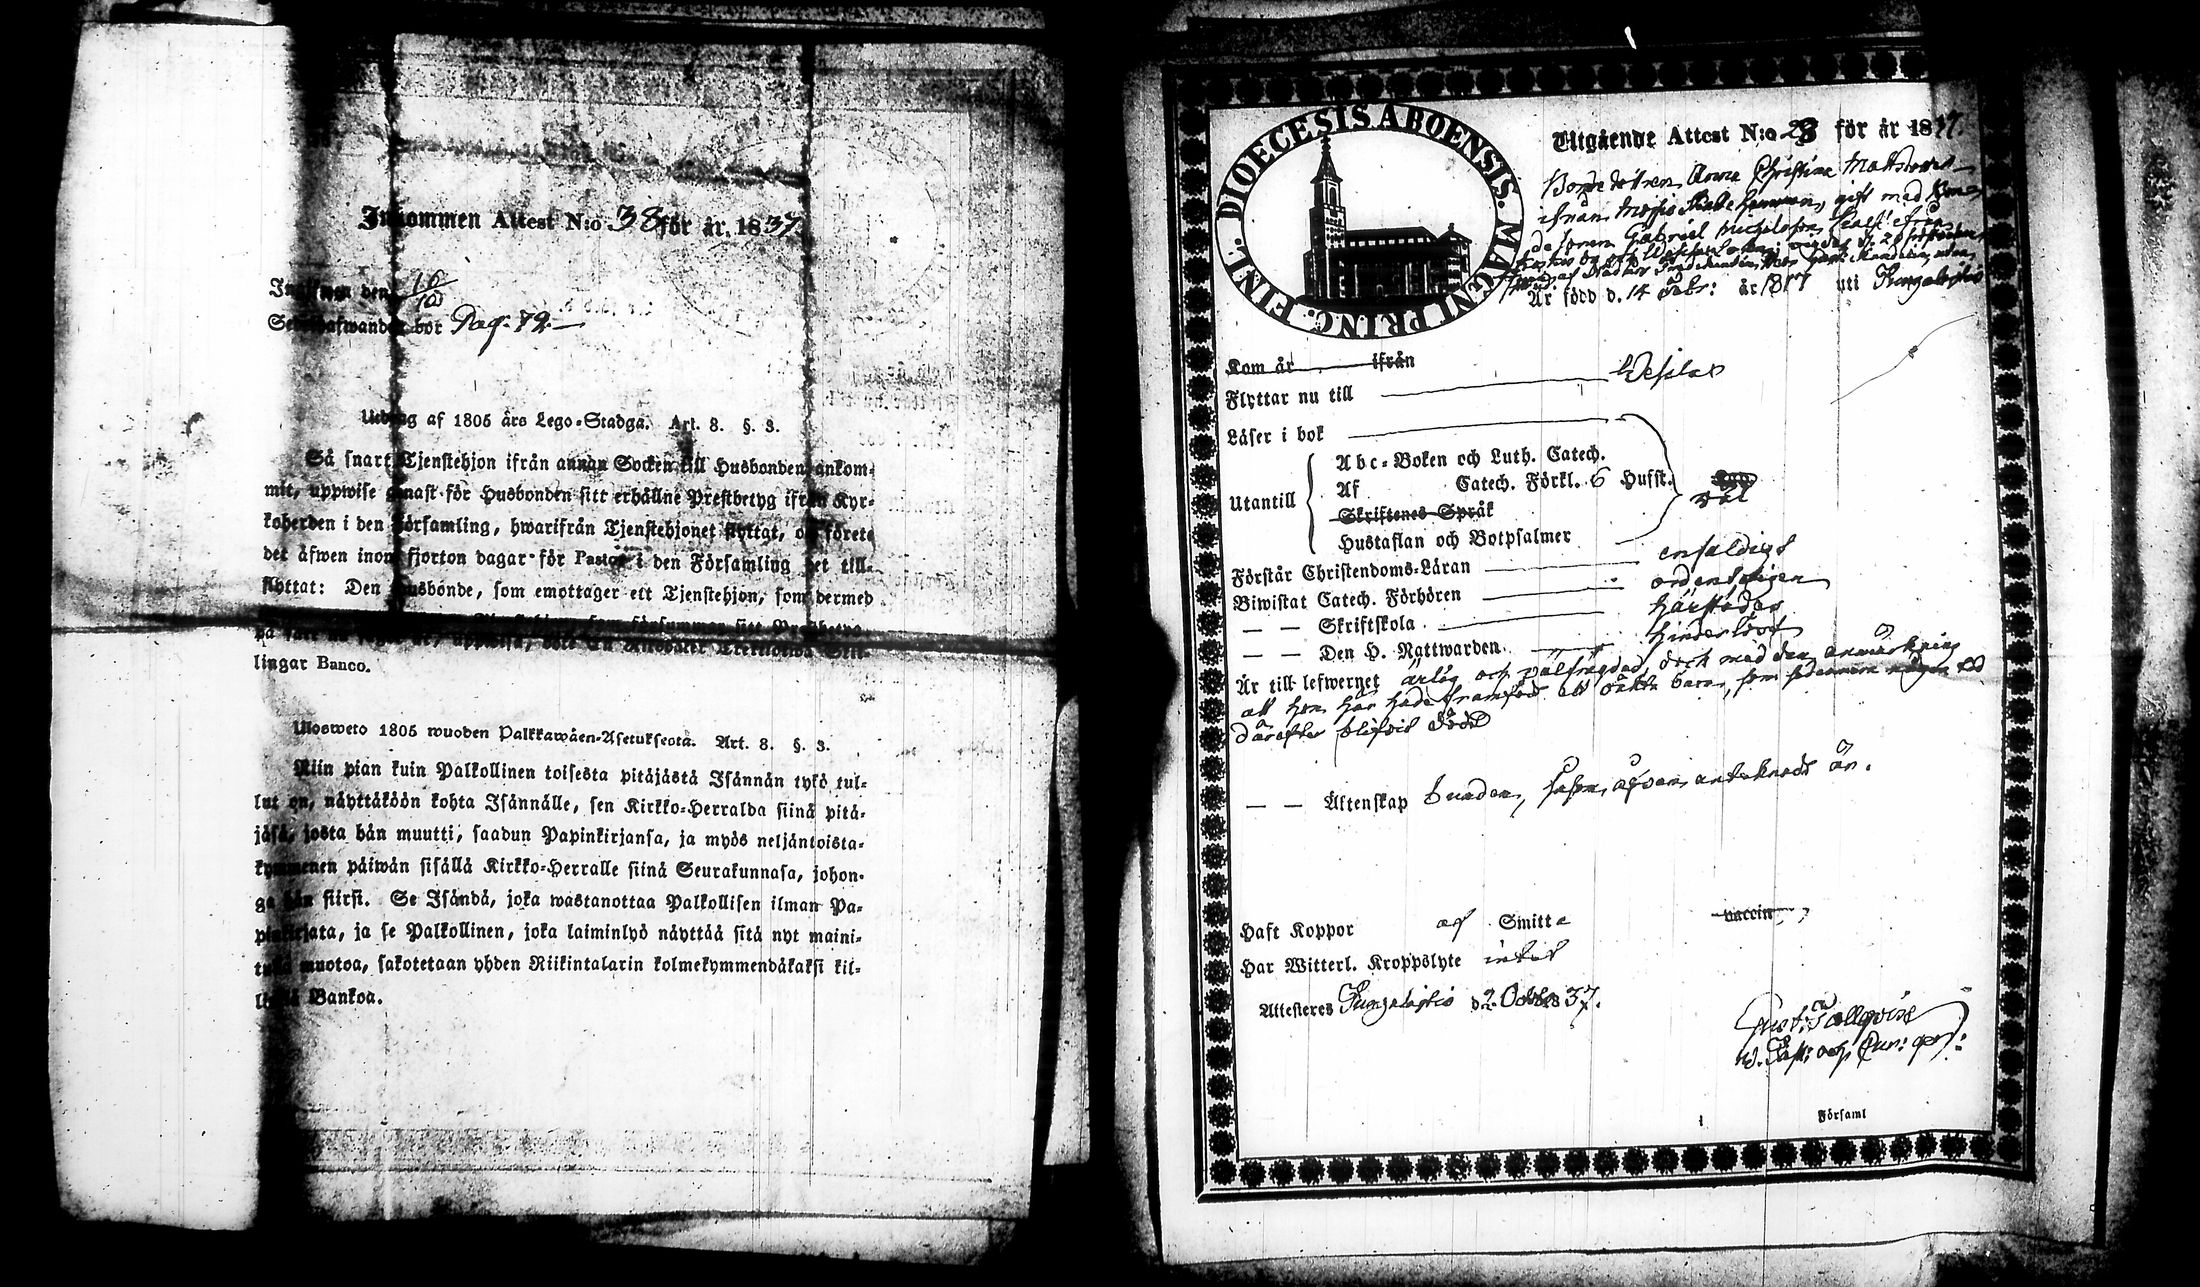 Inkommen Attest N:o 38 för år 1837.
Inskrefwen den 16/10
Sedelhafwanden bor Pag. 72.
Utdrag af 1805 års Lego-Stadga. Art. 8. §. 3.
Så snart Tjenstehjon ifrån annan Socken till Husbonden ankom-
mit, uppwise genast för Husbonden sitt erhållne Prestbetyg ifrån Kyr-
koherden i den Församling, hwarifrån Tjenstehjonet flyttat, och förete
det äfwen inom fjorton dagar för Pastor i den Församling det till-
flyttat: Den Husbonde, som emottager ett Tjenstehjon, som dermed
som försummar sitt Prestbetyg
på sätt nu sagdt är, uppwisa, böte En Riksdaler Trettiotwå Skil-
lingar Banco.
Ulosweto 1805 wuoden Palkkawäen-Asetuksesta. Art. 8. §. 3.
Niin pian kuin Palkollinen toisesta pitäjästä Isännän tykö tul-
lut on, näyttäköön kohta Isännälle, sen Kirkko-Herralda siinä pitä-
jäsä, josta hän muutti, saadun Papinkirjansa, ja myös neljäntoista-
kymmenen päiwän sisällä Kirkko-Herralle siinä Seurakunnasa, johon-
ga hän siirsi. Se Isändä, joka wastanottaa Palkollisen ilman Pa-
pinkirjata, ja se Palkollinen, joka laiminlyö näyttää sitä nyt maini-
tulla muotoa, sakotetaan yhden Riikintalarin kolmekymmendäkaksi kil-
lingiä Bankoa.
DIOECESIS ABOENSIS. MAGNI PRINC. FINL.
Utgående Attest N:o 23 för år 1837.
Bonde dottren Anna Christina Mattsdotter
ifrån gift med Bon-
de sonen Gabriel Michelsson
Är född d. 14 Febr: år 1817 uti Kungalagtio
Kom år ifrån
Flyttar nu till Wesilax
Läser i bok
Utantill
Abc-Boken och Luth. Catech.
Af Catech. Förkl. 6 Hufst.
Skriftenes Språk
Hustaflan och Botpsalmer
väl
Förstår Christendoms-Läran enfaldigt
Biwistat Catech. Förhören ordenteligen
— — Skriftskola härstädes
— — Den H. Nattwarden hinderlöst
Är till lefwernet ärlig och välfrägdad, dock med den anmärkning
att hon här hade framfödt ett oäkta barn, som sedermera någon tid
därefter blifvit död
— — Äktenskap bunden, såsom ofvan antecknadt är.
Haft Koppor af Smitta vaccin
Har Witterl. Kroppslyte intet
Attesteres Kungalagtio d. 2 Octob. 1837.
Gust: Tallqvist
Församl